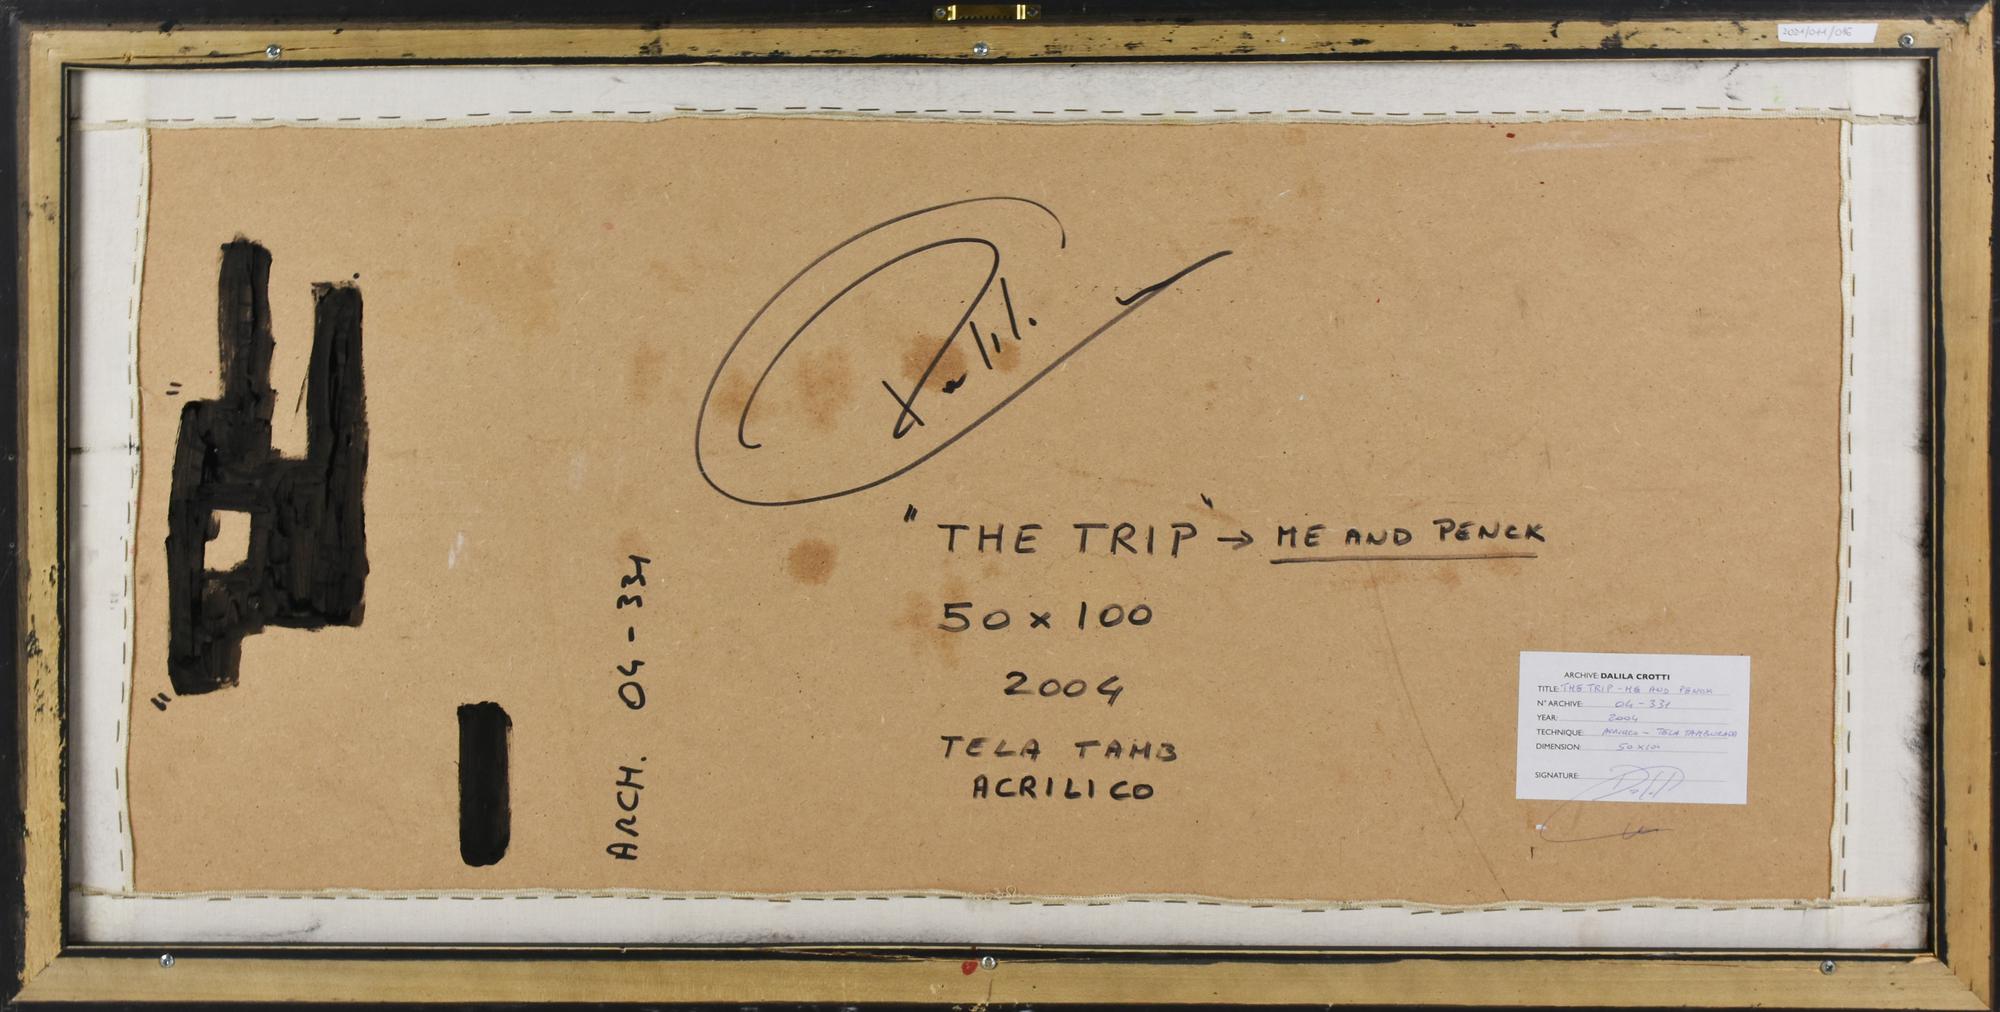 Dalil.
" THE TRIP " → ME AND PENCK
50 x 100
2004
TELA TAMB
ACRILICO
ARCH. 04-331
ARCHIVE: DALILA CROTTI
TITLE: THE TRIP - ME AND PENCK
N° ARCHIVE: 04-331
YEAR: 2004
TECHNIQUE: ACRILICO - TELA TAMBURATA
DIMENSION: 50 x 100
SIGNATURE: